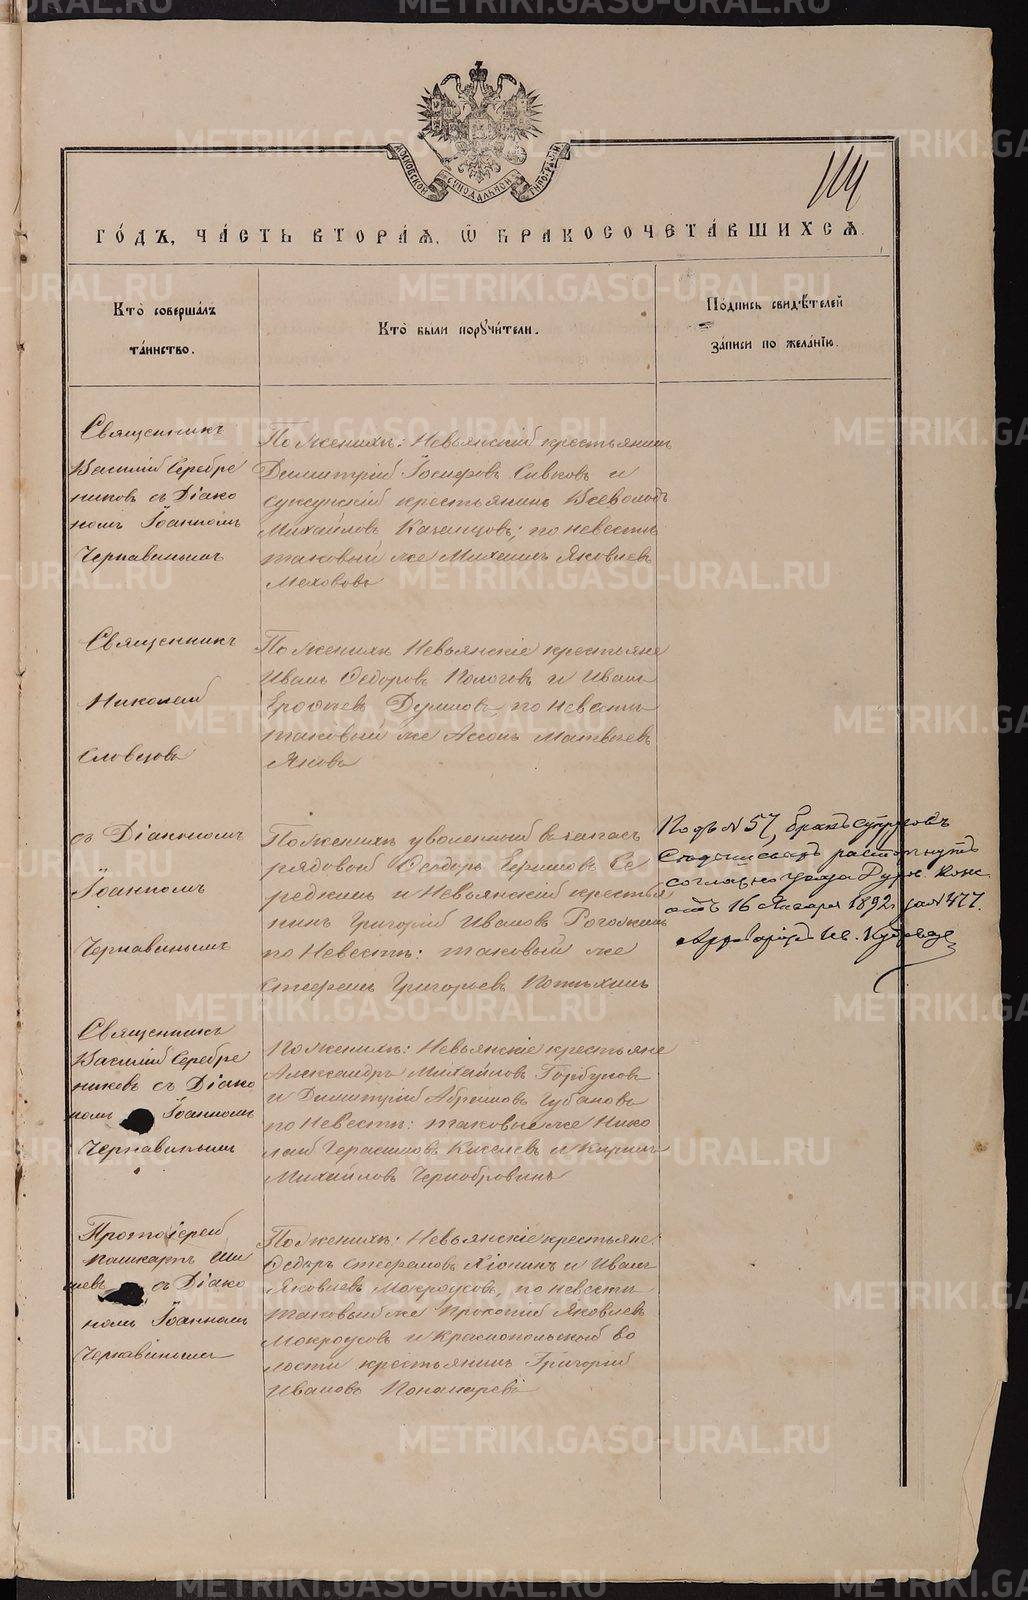 МОСКОВСКОЙ СѴНОДАЛЬНОЙ ТИПОГРАФІИ
ГОДЪ, ЧАСТЬ ВТОРАѦ, Ѿ БРАКОСОЧЕТАВШИХСѦ.
Кто совершалъ
таинство.
Кто были поручители.
Подпись свидѣтелей
записи по желанію.
Священникъ
Василій Серебре
никовъ съ Діако
номъ Іоанномъ
Чернавинымъ
По женихѣ: Невьянскій крестьянинъ
Димитрій Іосифовъ Сивковъ и
суксунскій крестьянинъ Всеволодъ
Михайловъ Казанцовъ; по невестѣ
таковый же Михаилъ Яковлевъ
Меховов
Священникъ
Николай
Словцовъ
По женихѣ Невьянскіе крестьяне
Иванъ Ѳедоровъ Пологовъ и Иванъ
Ерофѣевъ, по невестѣ
таковый же Матвѣевъ
съ Діакономъ
Іоанномъ
Чернавинымъ
По женихѣ уволенный в запасъ
рядовой Ѳедоръ Се
редкинъ и Невьянскій крестья
нинъ Григорій Ивановъ Рогожинъ
по Невестѣ: таковый же
Стефанъ Григорьевъ Потѣхинъ
Подъ № 57, бракъ супруговъ
расторгнутъ
согласно указа Духов. Конс.
отъ 16 Января 1892 г. за № 477.
Священникъ
Василій Серебре
никовъ съ Діако
номъ Іоанномъ
Чернавинымъ
По женихѣ: Невьянскіе крестьяне
Александръ Михайловъ Горбуновъ
и Димитрій Абрамовъ Губановъ
по Невестѣ: таковые же Нико
лай Герасимовъ Киселевъ и Кирилъ
Михайловъ Чернобровинъ
Протоіерей
съ Діако
номъ Іоанномъ
Чернавинымъ
По женихѣ: Невьянскіе крестьяне:
Ѳедоръ Стефановъ и Иванъ
Яковлевъ Мокроусовъ, по невестѣ
таковый же Прокопій Яковлевъ
Мокроусовъ и Краснопольской во
лости крестьянинъ Григорій
Ивановъ Пономаревъ
METRIKI.GASO-URAL.RU